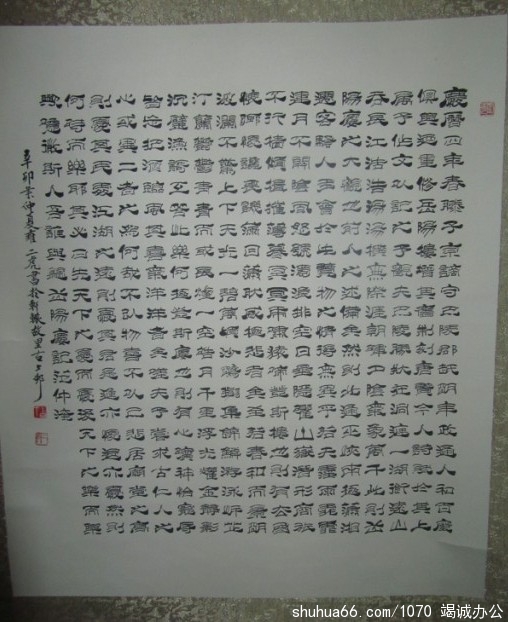 慶曆四年春滕子京謫守巴陵郡越明年政通人和百廢
俱興迺重修岳陽樓增其舊制刻唐賢今人詩賦於其上
屬予作文以記之予觀夫巴陵勝狀在洞庭一湖銜遠山
吞長江浩浩湯湯橫無際涯朝暉夕陰氣象萬千此則岳
陽樓之大觀也前人之述備矣然則北通巫峽南極瀟湘
遷客騷人多會於此覽物之情得無異乎若夫霪雨霏霏
連月不開陰風怒號濁浪排空日星隱耀山嶽潛形商旅
不行檣傾楫摧薄暮冥冥虎嘯猿啼登斯樓也則有去國
懷鄉憂讒畏譏滿目蕭然感極而悲者矣至若春和而景明
波瀾不驚上下天光一碧萬頃沙鷗翔集錦鱗游泳岸芷
汀蘭鬱鬱青青而或長煙一空皓月千里浮光耀金靜影
沉璧漁歌互答此樂何極登斯樓也則有心曠神怡寵辱
皆忘把酒臨風其喜洋洋者矣嗟夫予嘗求古仁人之
心或異二者之為何哉不以物喜不以己悲居廟堂之高
則憂其民處江湖之遠則憂其君是進亦憂退亦憂然則
何時而樂耶其必曰先天下之憂而憂後天下之樂而樂
歟噫微斯人吾誰與歸岳陽樓記范仲淹
辛卯年仲夏 二虎書於軒轅故里
shuhua66.com/1070 竭诚办公